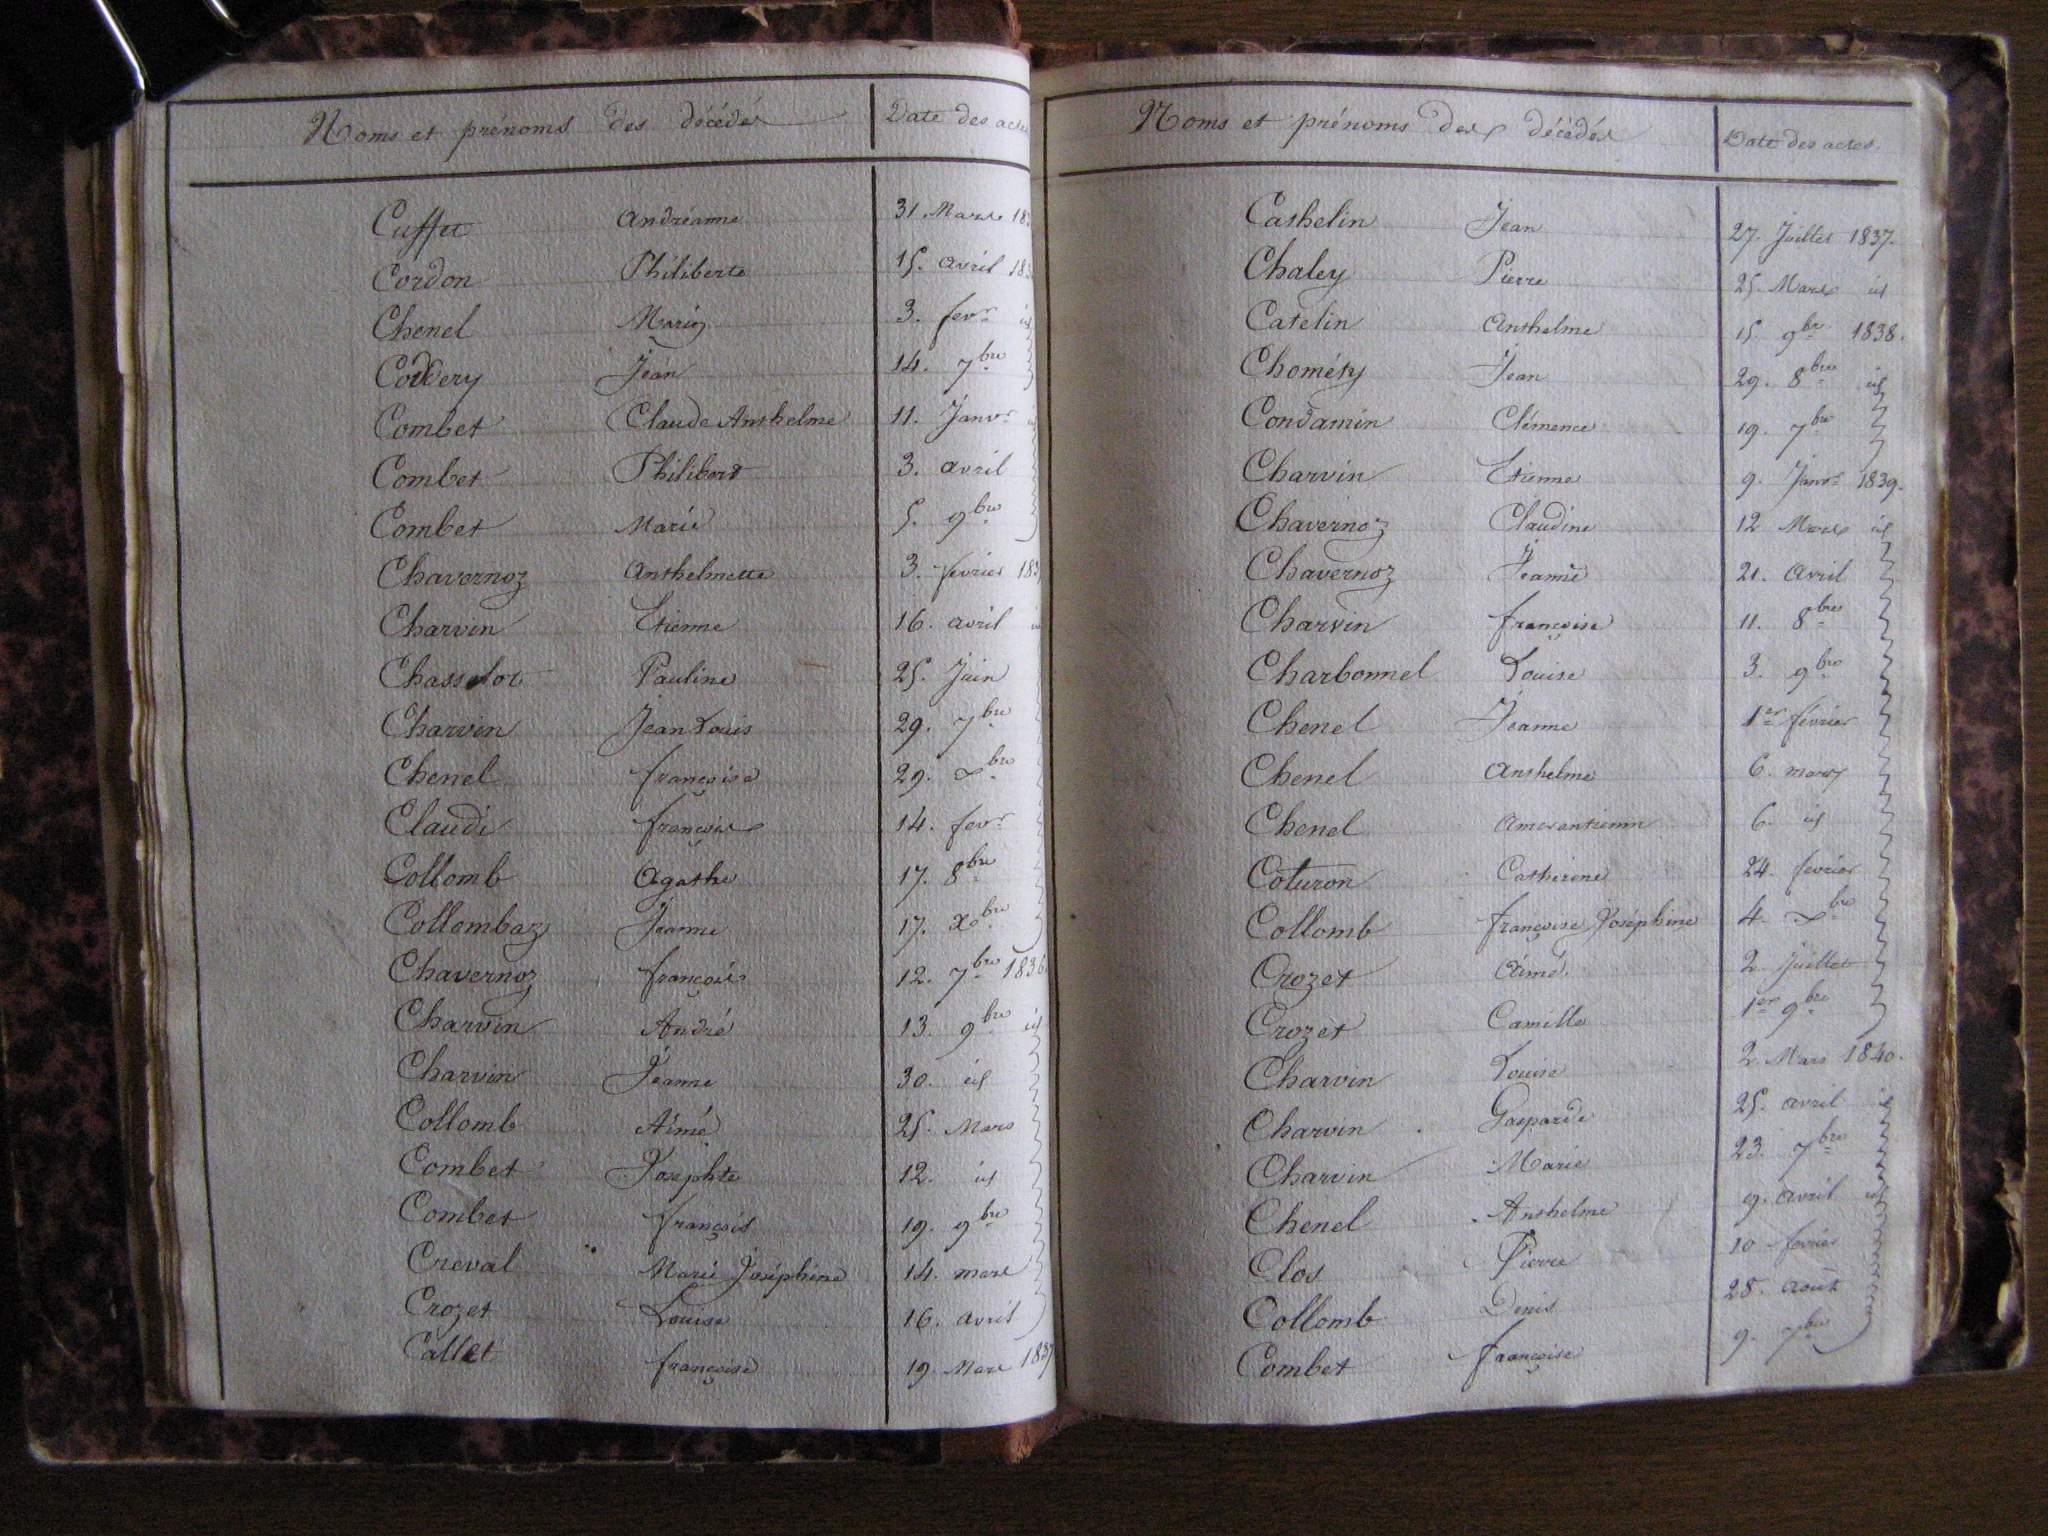 Noms et prénoms des décédés Date des actes
Cuffet Andréanne 31. Mars 183
Cordon Philiberte 15. avril 183
Chenel Marie 3. fevr id
Jean 14. 7bre
Combet Claude Anthelme 11. Janvr
Combet Philibert 3. avril
Combet Marie 5. 9bre
Chavernoz Anthelmette 3. février 183
Charvin Etienne 16. avril
Chasselot Pauline 25. Juin
Charvin Jean Louis 29. 7bre
Chenel françoise 29. Xbre
Claudi françois 14. fevr
Collomb Agathe 17. 8bre
Collombaz Jeanne 17. Xbre
Chavernoz françois 12. 7bre 1836
Charvin André 13. 9bre id
Charvin Jeanne 30. id
Collomb Aimé 25. Mars
Combet Josephte 12. id
Combet françois 19. 9bre
Creval Marie Joséphine 14. mars
Crozet Louise 16. avril
Callet françoise 19. Mars 1837
Noms et prénoms des décédés Date des actes.
Cathelin Jean 27. Juillet 1837.
Chaley Pierre 25. Mars id
Catelin Anthelme 15. 9bre 1838.
Chométy Jean 29. 8bre id
Condamin Clémence 19. 7bre
Charvin Etienne 9. Janvr 1839.
Chavernoz Claudine 12 Mars id
Chavernoz Jeanne 21. Avril
Charvin françoise 11. 8bre
Charbonnel Louise 3. 9bre
Chenel Jeanne 1er février
Chenel Anthelme 6. mars
Chenel 6. id
Coturon Catherine 24. fevrier
Collomb françoise Joséphine 4. Xbre
Crozet Aimé. 2. Juillet
Crozet Camille 1er 9bre
Charvin Louise 2. Mars 1840.
Charvin Gasparde 25. avril id
Charvin Marie 23. 7bre
Chenel Anthelme 9. avril id
Clos Pierre 10 fevrier
Collomb Denis 28. Août
Combet françoise 9. 7bre